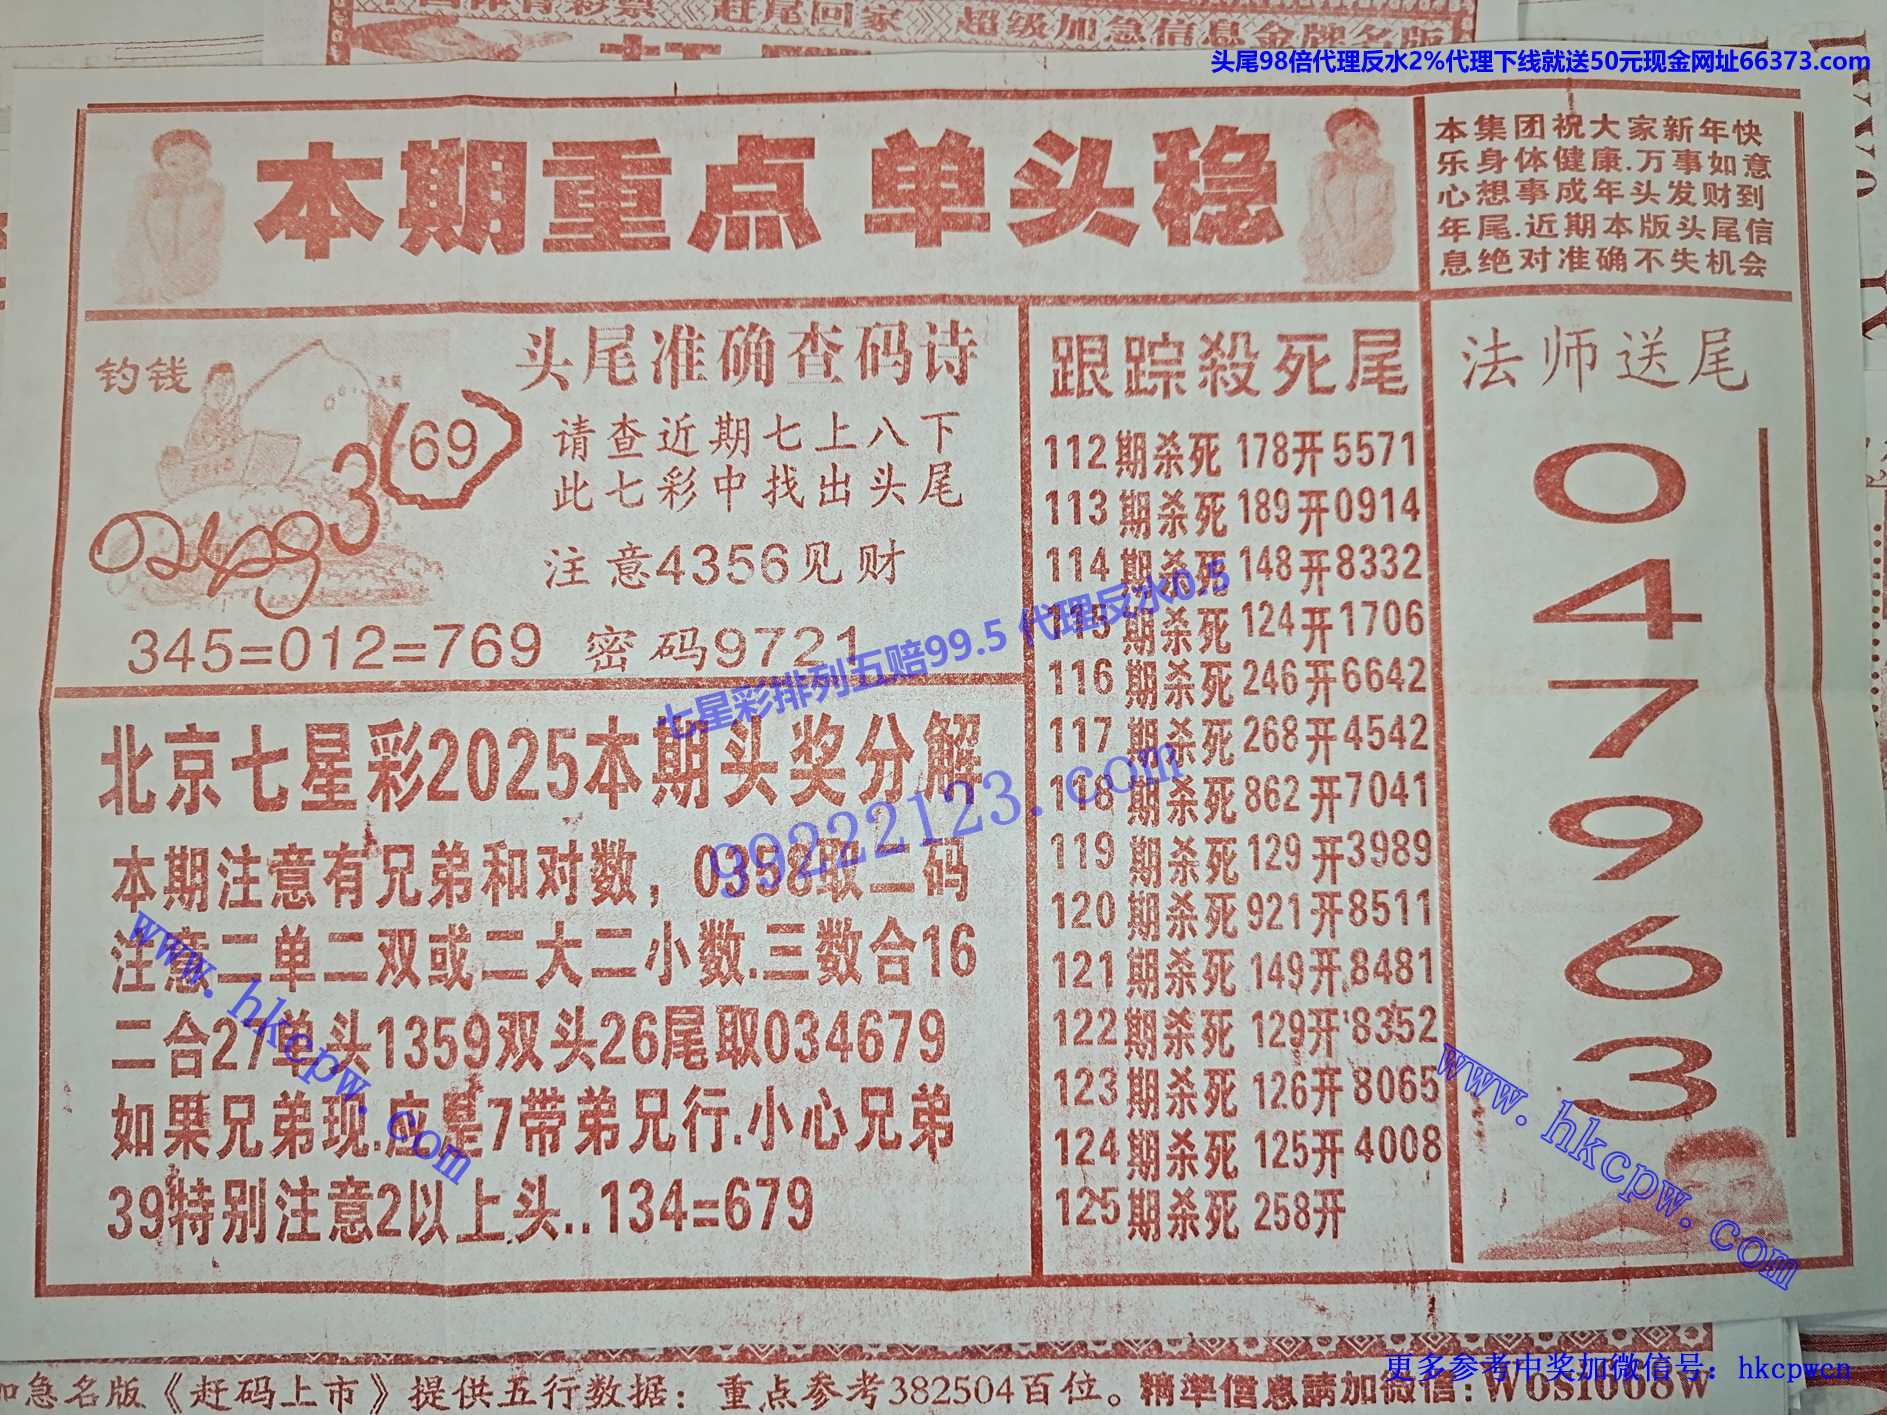 中国体育彩票《赶尾回家》超级加急信息金牌名版
头尾98倍代理反水2%代理下线就送50元现金网址66373.com
本期重点 单头稳
本集团祝大家新年快
乐身体健康.万事如意
心想事成年头发财到
年尾.近期本版头尾信
息绝对准确不失机会
钓钱
3(69)
0249
头尾准确查码诗
请查近期七上八下
此七彩中找出头尾
注意4356见财
345=012=769 密码9721
七星彩排列五赔99.5 代理反水0.5
99222123.com
北京七星彩2025本期头奖分解
本期注意有兄弟和对数，0358取二码
注意二单二双或二大二小数.三数合16
二合27单头1359双头26尾取034679
如果兄弟现.应是7带弟兄行.小心兄弟
39特别注意2以上头..134=679
www.hkcpw.com
跟踪殺死尾
112期杀死178开5571
113期杀死189开0914
114期杀死148开8332
115期杀死124开1706
116期杀死246开6642
117期杀死268开4542
118期杀死862开7041
119期杀死129开3989
120期杀死921开8511
121期杀死149开8481
122期杀死129开8352
123期杀死126开8065
124期杀死125开4008
125期杀死258开
法师送尾
0
4
7
9
6
3
www.hkcpw.com
更多参考中奖加微信号：hkcpwcn
加急名版《赶码上市》提供五行数据：重点参考382504百位。精準信息請加微信:W0sl068w